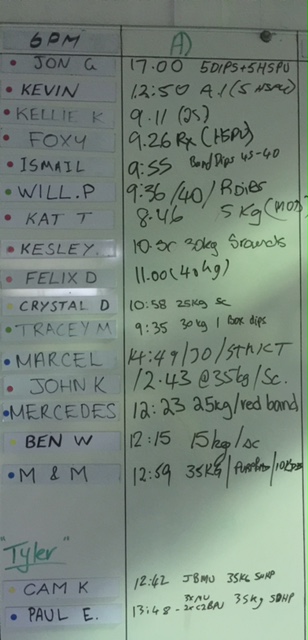 6PM A)
JON G 17:00 5DIPS+5HSPU
KEVIN 12:50 A.1 (5 HSPU)
KELLIE K 9.11 (JS)
FOXY 9.26 Rx (HSPU)
ISMAIL 9:55 Band Dips 45-40
WILL.P 9:36/40/R Dips
KAT T 8.46 5Kg (MOD)
KESLEY. 30kg 5rounds
FELIX D 11.00 (40kg)
CRYSTAL D 10:58 25kg sc
TRACEY M 9:35 30kg / Box dips
MARCEL 14:49/30/STRICT
JOHN K 12.43 @35kg/Sc.
MERCEDES 12:23 25kg/red band
BEN W 12:15 15kg/sc
M & M 12:59 35KG/
"Tyler"
CAM K 12:42 JBMU 35KG SDHP
PAUL E. 13:48 - 35kg SDHP